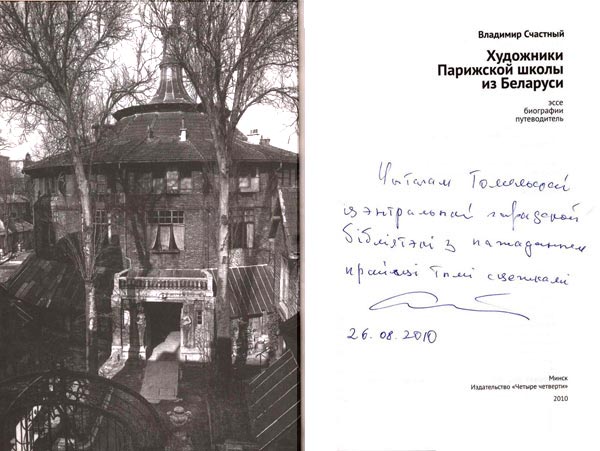 Владимир Счастный
Художники
Парижской школы
из Беларуси
эссе
биографии
путеводитель
Чытачам Гомельскай
цэнтральнай гарадской
бібліятэкі з пажаданнем
прайсці тымі сцежкамі
26.08.2010
Минск
Издательство «Четыре четверти»
2010